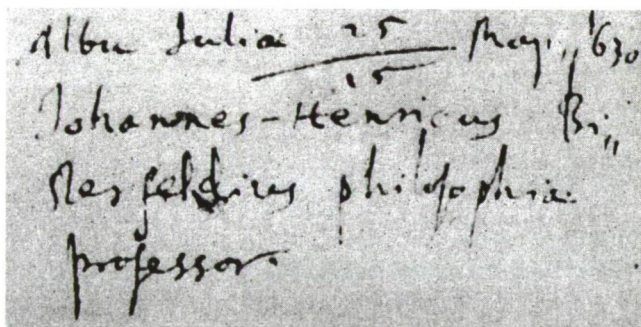 Alba Julia 25/15 Maji „ 630
Johannes-Henricus Bi„
sterfeldius philosophiæ
professor.